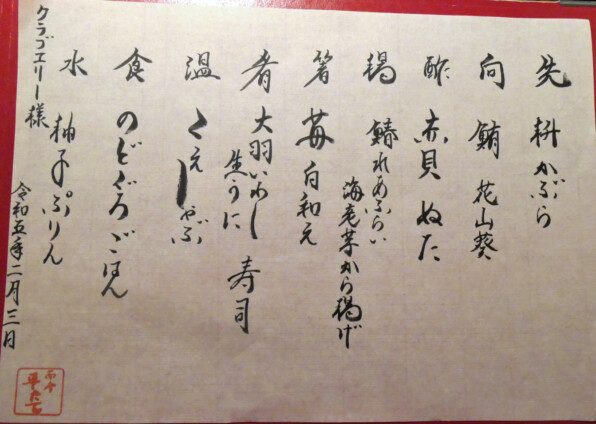 先 かぶら
向 鮪 花山葵
酢 赤貝 ぬた
揚 鰆れあふらい
海老芋から揚げ
箸 苺 白和え
肴 大羽いわし 寿司
生うに
温 くえしゃぶ
食 のどぐろごはん
水 柚子ぷりん
令和五年二月三日
クラブエリー様